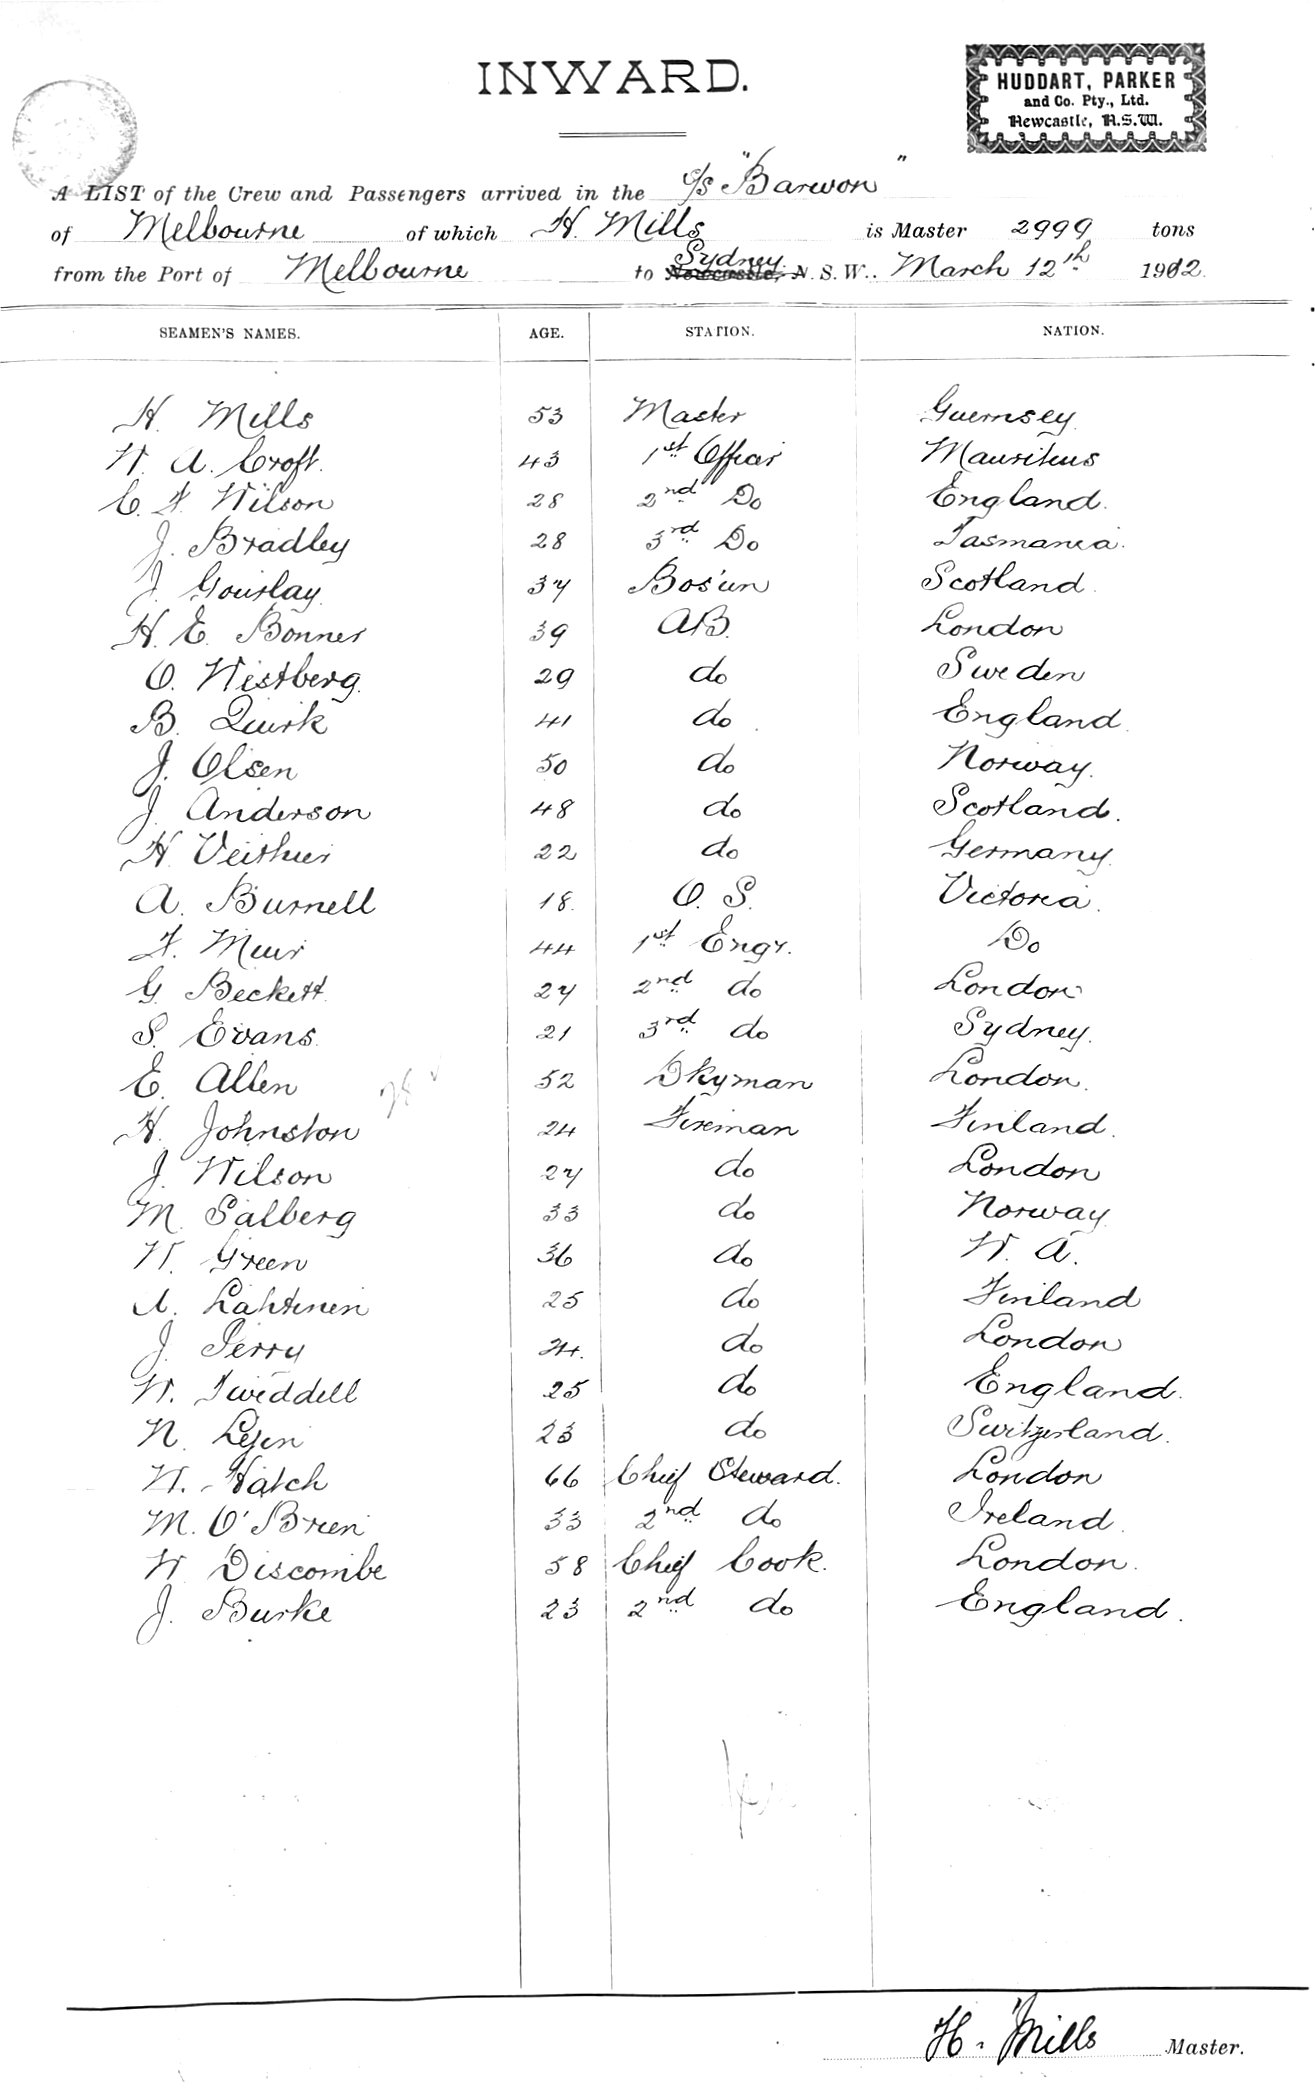 INWARD.
HUDDART, PARKER
and Co. Pty., Ltd.
Newcastle, N.S.W.
A LIST of the Crew and Passengers arrived in the s/s "Barwon"
of Melbourne of which H. Mills is Master 2999 tons
from the Port of Melbourne to Sydney Newcastle, N.S.W., March 12th 1912.
SEAMEN'S NAMES. AGE. STATION. NATION.
H. Mills 53 Master Guernsey.
W. A. Croft. 43 1st Officer Mauritius
C. F. Wilson 28 2nd Do England.
J. Bradley 28 3rd Do Tasmania.
J. Gourlay 37 Bos'un Scotland.
H. E. Bonner 39 AB. London
O. Westberg. 29 do Sweden
B. Quirk 41 do England.
J. Olsen 50 do Norway.
J. Anderson 48 do Scotland.
H. 22 do Germany.
A. Burnell 18. O. S. Victoria.
F. Muir 44 1st Engr. Do
G. Beckett. 27 2nd do London
S. Evans. 21 3rd do Sydney.
E. Allen 52 Dkyman London.
H. Johnston 24 Fireman Finland.
J. Wilson 27 do London
M. Salberg 33 do Norway
W. Green 36 do W. A.
A. Lahtinen 25 do Finland
J. Perry 24. do London
W. Tweddell 25 do England.
N. 23 do Switzerland.
W. Hatch 66 Chief Steward. London
M. O'Brien 33 2nd do Ireland.
W. Discombe 58 Chief Cook. London.
J. Burke 23 2nd do England.
H. Mills Master.